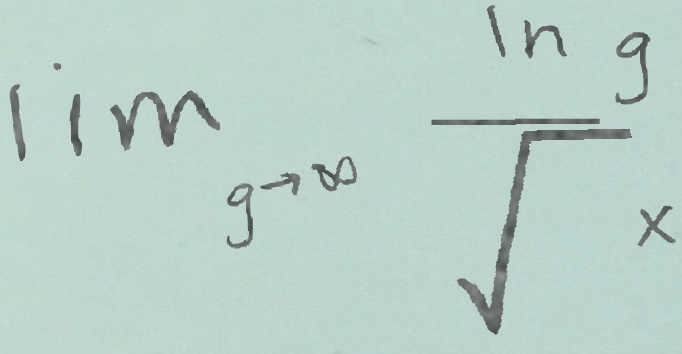 lim g→∞ ln g / √x